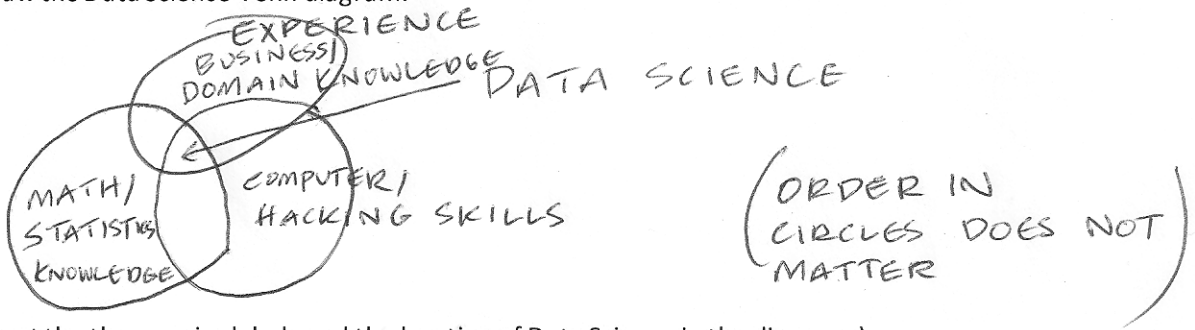 the Data Science Venn diagram.
EXPERIENCE
BUSINESS/
DOMAIN KNOWLEDGE
DATA SCIENCE
MATH/
STATISTICS
KNOWLEDGE
COMPUTER/
HACKING SKILLS
(ORDER IN
CIRCLES DOES NOT
MATTER)